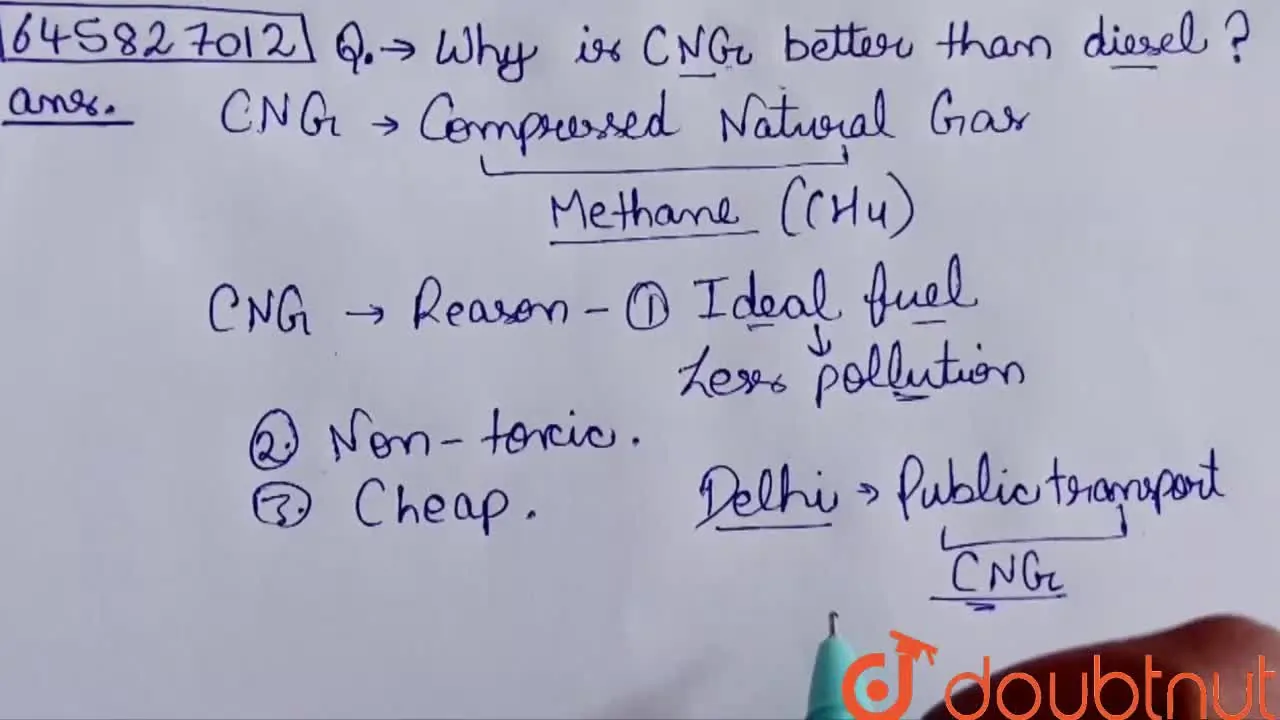 645827012 Q.→ Why is CNG better than diesel?
ans. CNG → Compressed Natural Gas
Methane (CH4)
CNG → Reason - ① Ideal fuel
↓
Less pollution
②. Non-toxic.
③. Cheap.
Delhi → Public transport
CNG
doubtnut